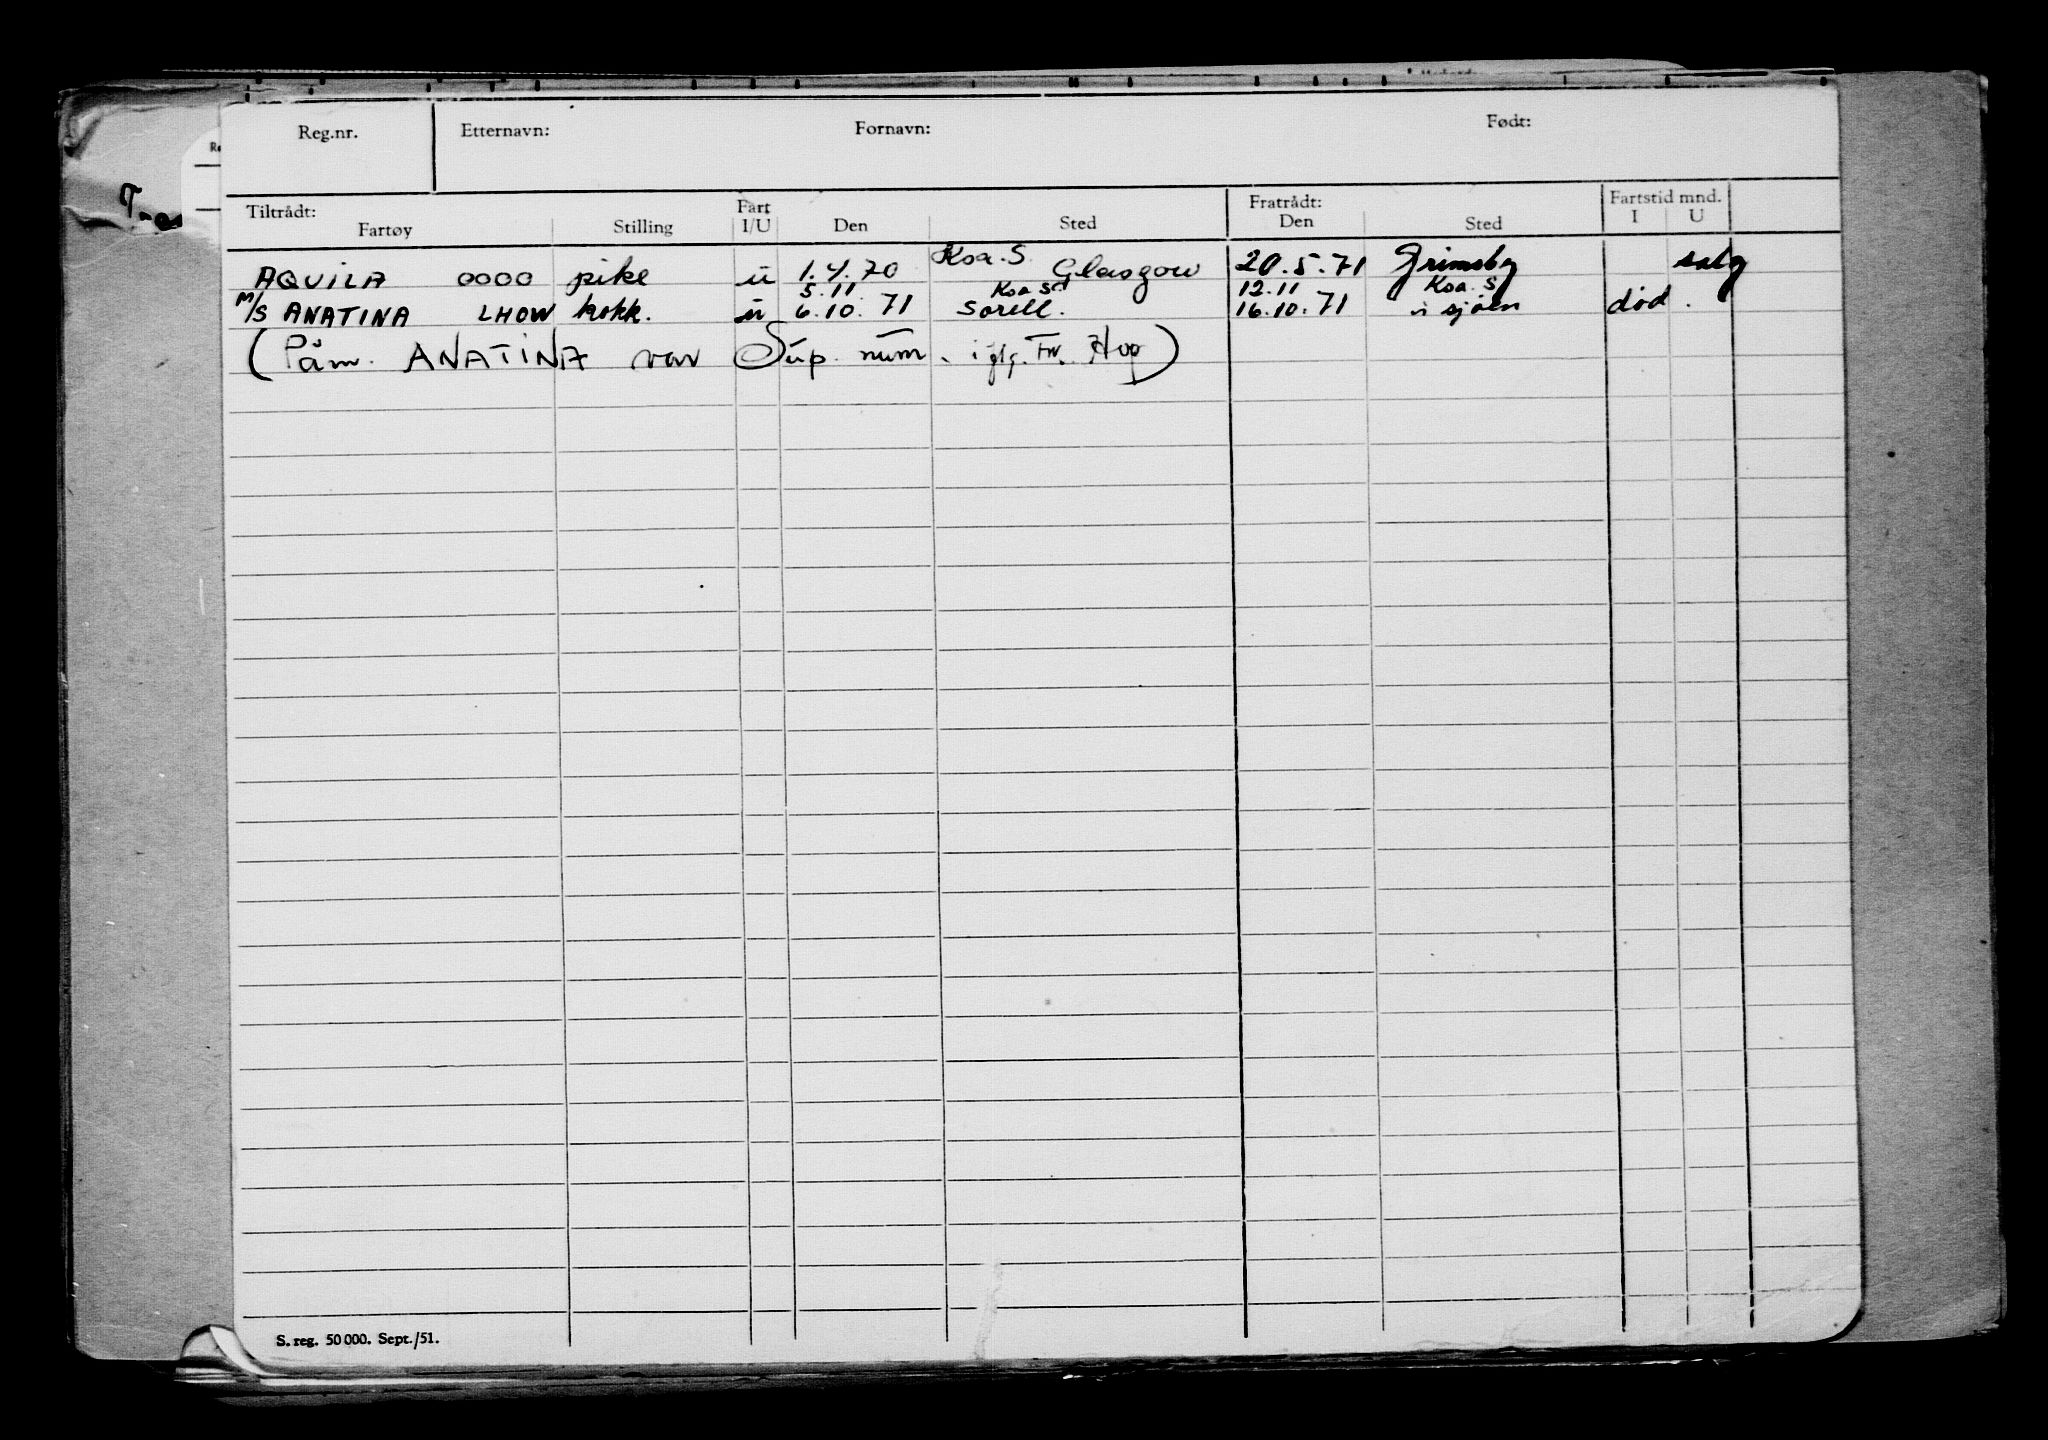 Reg.nr. Etternavn: Fornavn: Født:
Tiltrådt: Fratrådt: Fartstid mnd.
Fartøy Stilling Fart I/U Den Sted Den Sted I U
AQUILA OOOO pike u 1.4.70 Koa. S. Glasgow 20.5.71 Grimsby salg
5.11 Koa Sd 12.11 Koa. S
M/S ANATINA LHOW kokk. u 6.10.71 Sorell. 16.10.71 i sjøen død.
(Påm. ANATINA var Sup. num. iflg. Fr. )
S. reg. 50 000. Sept./51.